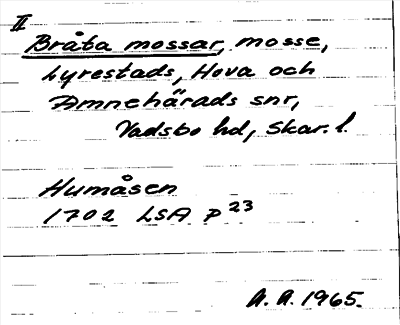 II
Bråta mossar, mosse,
Lyrestads, Hova och
Amnehärads snr,
Vadsbo hd, Skar. l.
Humåsen
1702 LSA P 23
A. A. 1965.